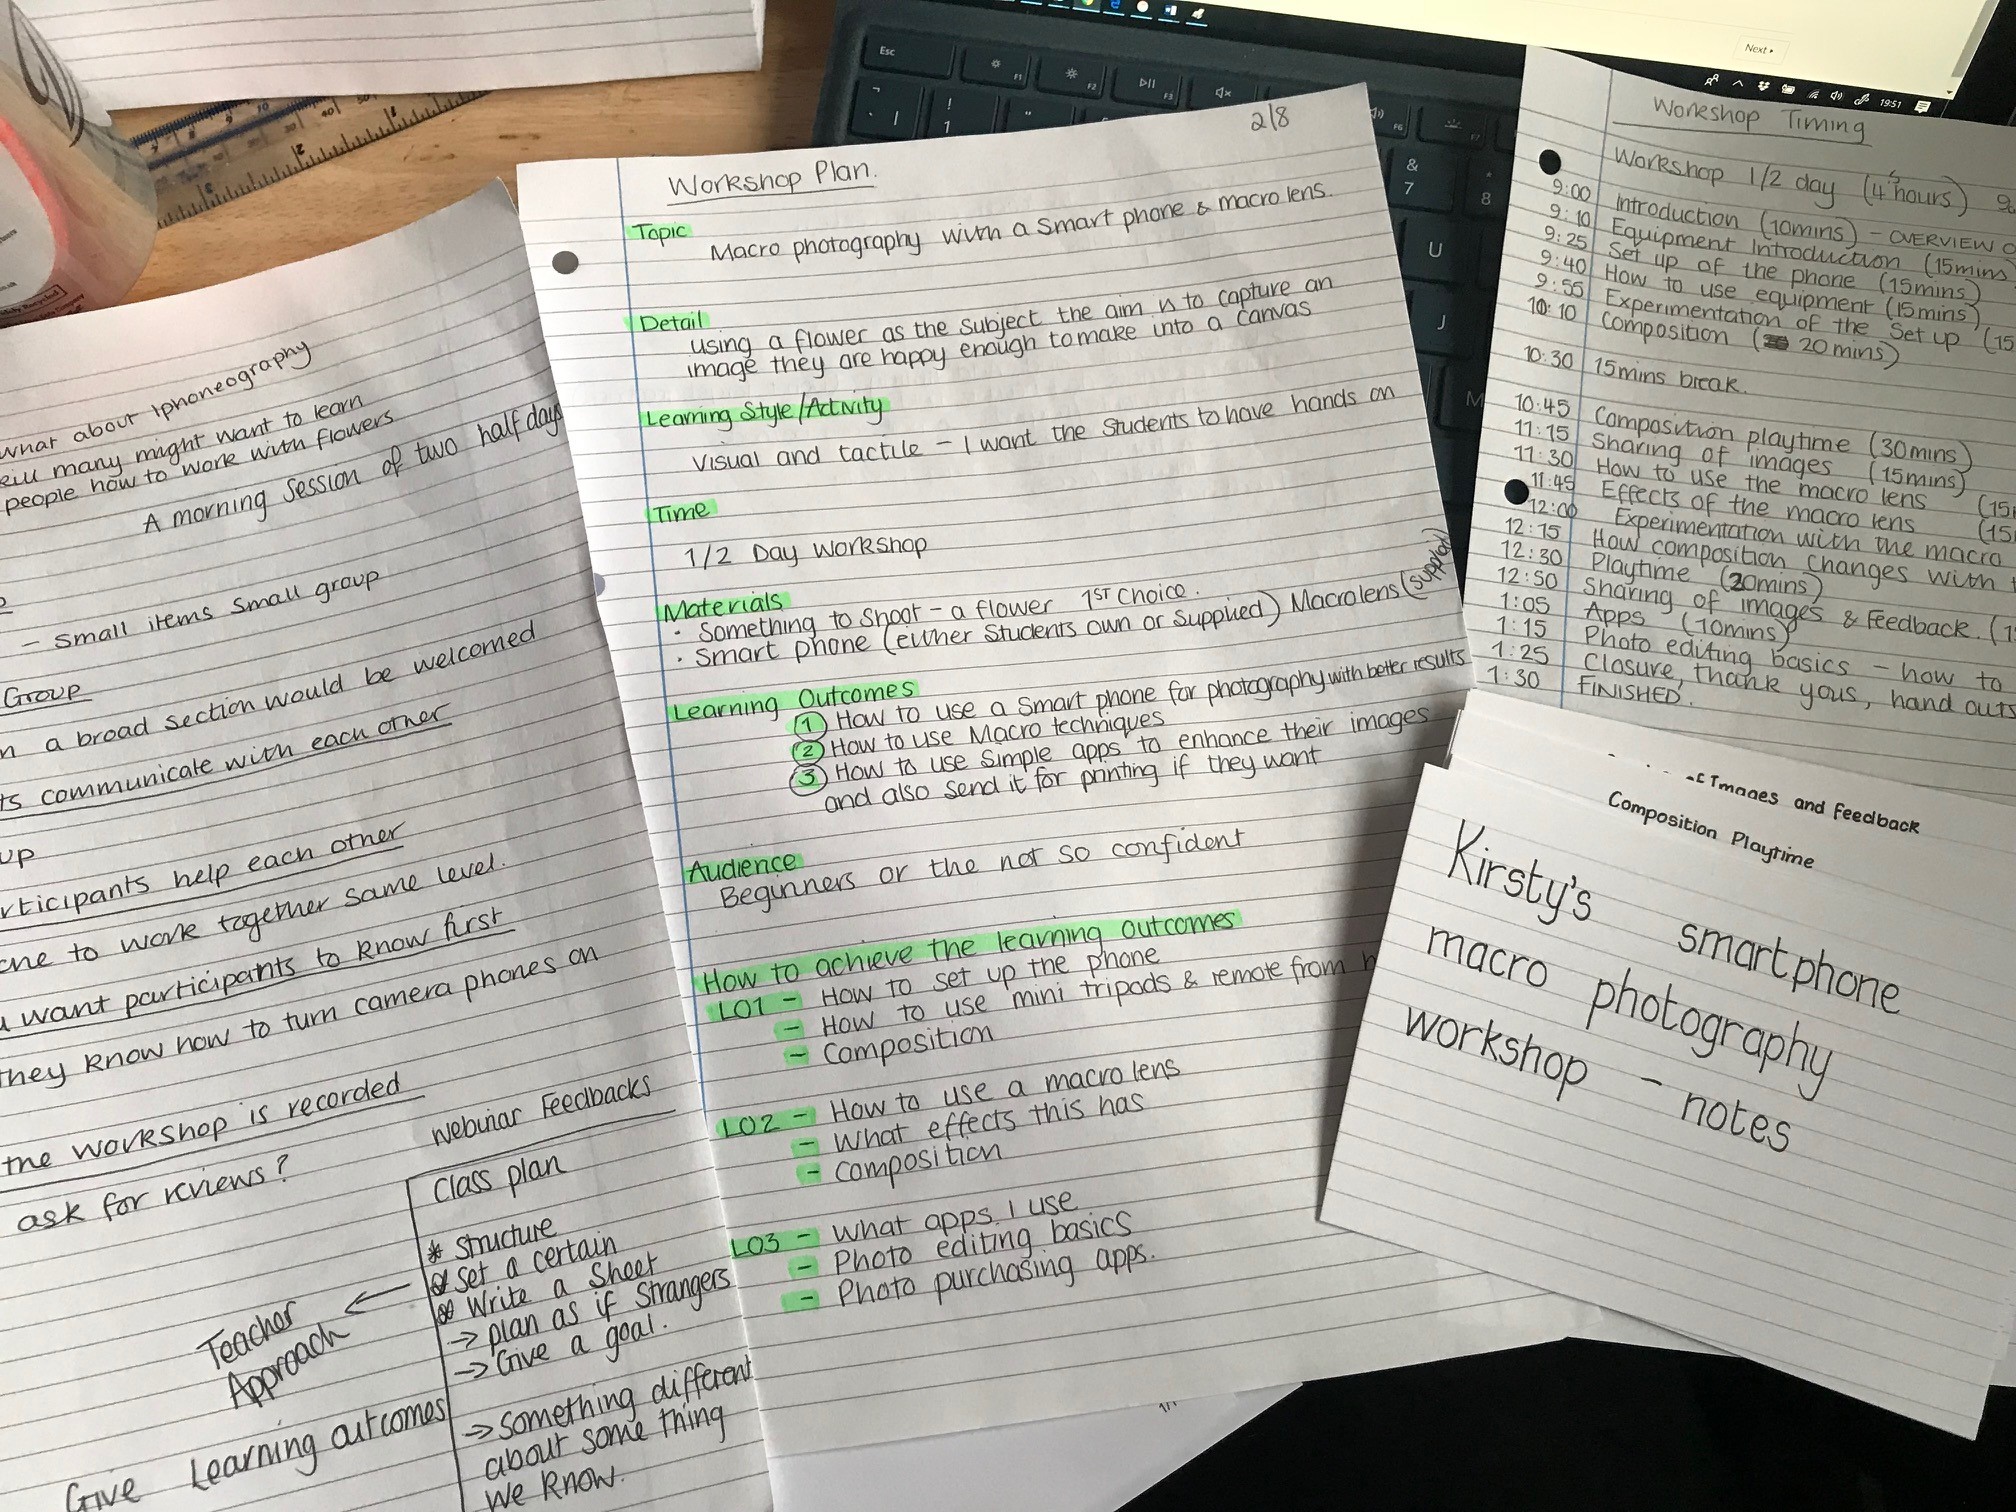 what about Iphoneography
many might want to learn
people how to work with flowers
A morning session of two half days
- Small items small group
Group
a broad section would be welcomed
communicate with each other
up
help each other
to work together same level.
want participants to know first
they know how to turn camera phones on
the workshop is recorded
ask for reviews?
Webinar Feedbacks
Class plan
* Structure
Set a certain
Write a Sheet
→ plan as if Strangers
→ Give a goal.
Teacher
Approach
→ Something different
about some thing
we know.
Give Learning outcomes
2/8
Workshop Plan.
Topic
Macro photography with a smart phone & macro lens.
Detail
using a flower as the subject the aim is to capture an
image they are happy enough to make into a canvas
Learning Style/Activity
Visual and tactile - I want the students to have hands on
Time
1/2 Day Workshop
Materials
· Something to shoot - a flower 1ST choice.
· Smart phone (either Students own or Supplied) Macrolens (supplied)
Learning Outcomes
1 How to use a smart phone for photography with better results
2 How to use Macro techniques
3 How to use Simple apps to enhance their images
and also send it for printing if they want
Audience
Beginners or the not so confident
How to achieve the learning outcomes
LO1 - How to set up the phone
- How to use mini tripods & remote from
- Composition
LO2 - How to use a macro lens
- What effects this has
- Composition
LO3 - What apps I use
- Photo editing basics
- Photo purchasing apps.
Workshop Timing
Workshop 1/2 day (4 hours)
9:00 Introduction (10mins) - OVERVIEW
9:10 Equipment Introduction (15mins)
9:25 Set up of the phone (15mins)
9:40 How to use equipment (15mins)
9:55 Experimentation of the Set up (15
10:10 Composition (20 mins)
10:30 15mins break.
10:45 Composition playtime (30mins)
11:15 Sharing of images (15mins)
11:30 How to use the macro lens
11:45 Effects of the macro lens
12:00 Experimentation with the macro
12:15 How composition changes with
12:30 Playtime (20mins)
12:50 Sharing of images & feedback.
1:05 Apps - (10mins)
1:15 Photo editing basics - how to
1:25 Closure, thank yous, hand outs
1:30 FINISHED.
of Images and feedback
Composition Playtime
Kirsty's smartphone
macro photography
workshop - notes
Next
19:51
Esc
F1
F2
F3
F6
F7
!
1
&
7
*
8
U
J
M